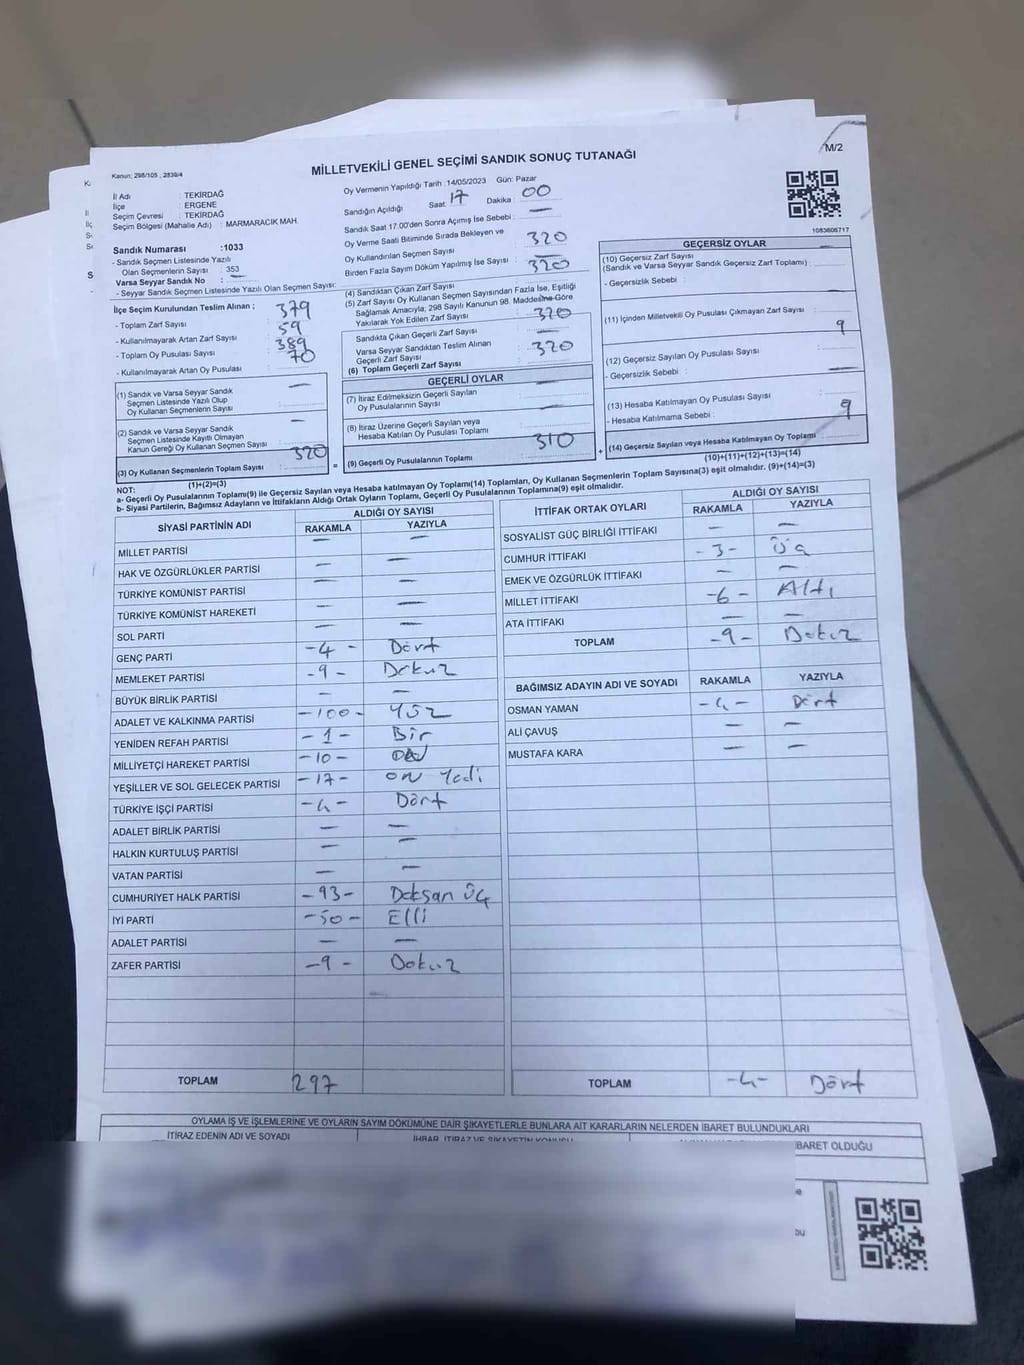 M/2
Kanun: 298/105 , 2839/4
MİLLETVEKİLİ GENEL SEÇİMİ SANDIK SONUÇ TUTANAĞI
İl Adı : TEKİRDAĞ
İlçe : ERGENE
Seçim Çevresi : TEKİRDAĞ
Seçim Bölgesi (Mahalle Adı) : MARMARACIK MAH.
Sandık Numarası :1033
- Sandık Seçmen Listesinde Yazılı
Olan Seçmenlerin Sayısı : 353
Varsa Seyyar Sandık No : —
- Seyyar Sandık Seçmen Listesinde Yazılı Olan Seçmen Sayısı:
İlçe Seçim Kurulundan Teslim Alınan :
- Toplam Zarf Sayısı : 379
- Kullanılmayarak Artan Zarf Sayısı : 59
- Toplam Oy Pusulası Sayısı : 389
- Kullanılmayarak Artan Oy Pusulası : 70
(1) Sandık ve Varsa Seyyar Sandık
Seçmen Listesinde Yazılı Olup
Oy Kullanan Seçmenlerin Sayısı : —
(2) Sandık ve Varsa Seyyar Sandık
Seçmen Listesinde Kayıtlı Olmayan
Kanun Gereği Oy Kullanan Seçmen Sayısı : —
(3) Oy Kullanan Seçmenlerin Toplam Sayısı : 320
(1)+(2)=(3)
Oy Vermenin Yapıldığı Tarih :14/05/2023 Gün: Pazar
Sandığın Açıldığı Saat: 17 Dakika : 00
Sandık Saat 17.00'den Sonra Açımış İse Sebebi : —
Oy Verme Saati Bitiminde Sırada Bekleyen ve
Oy Kullandırılan Seçmen Sayısı : 320
Birden Fazla Sayım Döküm Yapılmış İse Sayısı : 320
(4) Sandıktan Çıkan Zarf Sayısı
(5) Zarf Sayısı Oy Kullanan Seçmen Sayısından Fazla İse, Eşitliği
Sağlamak Amacıyla, 298 Sayılı Kanunun 98. Maddesine Göre
Yakılarak Yok Edilen Zarf Sayısı : 320
Sandıkta Çıkan Geçerli Zarf Sayısı : —
Varsa Seyyar Sandıktan Teslim Alınan
Geçerli Zarf Sayısı
(6) Toplam Geçerli Zarf Sayısı : 320
GEÇERLİ OYLAR
(7) İtiraz Edilmeksizin Geçerli Sayılan
Oy Pusulalarının Sayısı : —
(8) İtiraz Üzerine Geçerli Sayılan veya
Hesaba Katılan Oy Pusulası Toplamı : —
(9) Geçerli Oy Pusulalarının Toplamı : 310
1083606717
GEÇERSİZ OYLAR
(10) Geçersiz Zarf Sayısı
(Sandık ve Varsa Seyyar Sandık Geçersiz Zarf Toplamı) : —
- Geçersizlik Sebebi :
(11) İçinden Milletvekili Oy Pusulası Çıkmayan Zarf Sayısı :
9
(12) Geçersiz Sayılan Oy Pusulası Sayısı
- Geçersizlik Sebebi : —
(13) Hesaba Katılmayan Oy Pusulası Sayısı
- Hesaba Katılmama Sebebi : 9
(14) Geçersiz Sayılan veya Hesaba Katılmayan Oy Toplamı :
(10)+(11)+(12)+(13)=(14)
NOT:
a- Geçerli Oy Pusulalarının Toplamı(9) ile Geçersiz Sayılan veya Hesaba katılmayan Oy Toplamı(14) Toplamları, Oy Kullanan Seçmenlerin Toplam Sayısına(3) eşit olmalıdır. (9)+(14)=(3)
b- Siyasi Partilerin, Bağımsız Adayların ve İttifakların Aldığı Ortak Oyların Toplamı, Geçerli Oy Pusulalarının Toplamına(9) eşit olmalıdır.
SİYASİ PARTİNİN ADI ALDIĞI OY SAYISI
RAKAMLA YAZIYLA
MİLLET PARTİSİ — —
HAK VE ÖZGÜRLÜKLER PARTİSİ — —
TÜRKİYE KOMÜNİST PARTİSİ — —
TÜRKİYE KOMÜNİST HAREKETİ — —
SOL PARTİ — —
GENÇ PARTİ -4- Dört
MEMLEKET PARTİSİ -9- Dokuz
BÜYÜK BİRLİK PARTİSİ — —
ADALET VE KALKINMA PARTİSİ -100- Yüz
YENİDEN REFAH PARTİSİ -1- Bir
MİLLİYETÇİ HAREKET PARTİSİ -10- ON
YEŞİLLER VE SOL GELECEK PARTİSİ -17- on Yedi
TÜRKİYE İŞÇİ PARTİSİ -4- Dört
ADALET BİRLİK PARTİSİ — —
HALKIN KURTULUŞ PARTİSİ — —
VATAN PARTİSİ — —
CUMHURİYET HALK PARTİSİ -93- Doksan Üç
İYİ PARTİ -50- Elli
ADALET PARTİSİ — —
ZAFER PARTİSİ -9- Dokuz
TOPLAM 297
İTTİFAK ORTAK OYLARI ALDIĞI OY SAYISI
RAKAMLA YAZIYLA
SOSYALİST GÜÇ BİRLİĞİ İTTİFAKI — —
CUMHUR İTTİFAKI -3- Üç
EMEK VE ÖZGÜRLÜK İTTİFAKI — —
MİLLET İTTİFAKI -6- Altı
ATA İTTİFAKI — —
TOPLAM -9- Dokuz
BAĞIMSIZ ADAYIN ADI VE SOYADI RAKAMLA YAZIYLA
OSMAN YAMAN -4- Dört
ALİ ÇAVUŞ — —
MUSTAFA KARA — —
TOPLAM -4- Dört
OYLAMA İŞ VE İŞLEMLERİNE VE OYLARIN SAYIM DÖKÜMÜNE DAİR ŞİKAYETLERLE BUNLARA AİT KARARLARIN NELERDEN İBARET BULUNDUKLARI
İTİRAZ EDENİN ADI VE SOYADI İHBAR, İTİRAZ VE ŞİKAYETİN KONUSU BARET OLDUĞU